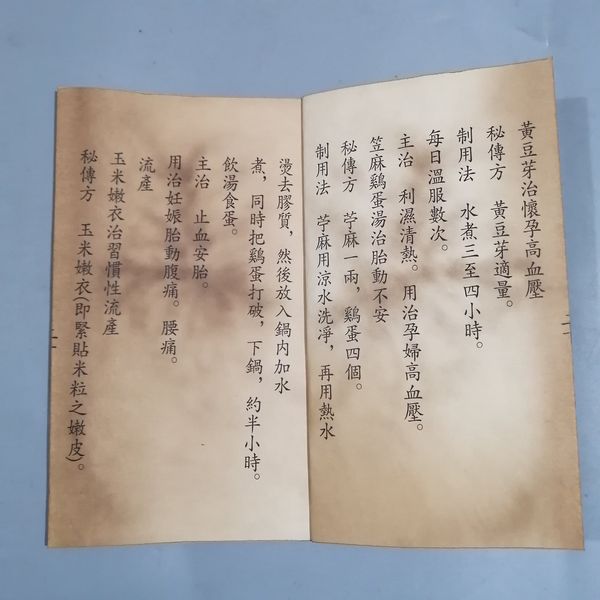 黃豆芽治懷孕高血壓
秘傳方 黃豆芽適量。
制用法 水煮三至四小時。
每日溫服數次。
主治 利濕清熱。用治孕婦高血壓。
笠麻鷄蛋湯治胎動不安
秘傳方 苧麻一兩，鷄蛋四個。
制用法 苧麻用凉水洗凈，再用熱水
燙去膠質，然後放入鍋内加水
煮，同時把鷄蛋打破，下鍋，約半小時。
飲湯食蛋。
主治 止血安胎。
用治妊娠胎動腹痛。腰痛。
流產
玉米嫩衣治習慣性流產
秘傳方 玉米嫩衣(即緊貼米粒之嫩皮)。